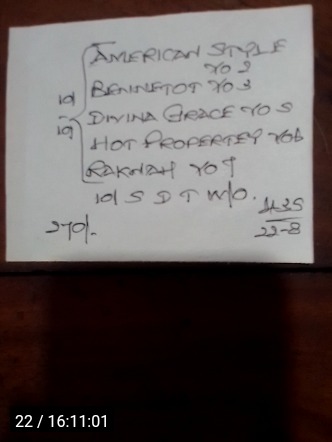 AMERICAN STYLE
YO 2
BENNETOT YO 3
10/
19
DIVINA GRACE YO 5
HOT PROPERTEY YO6
RAKNAH YO 9
10/ S D T W/O.
4.35
22-8
270/-
22 / 16:11:01